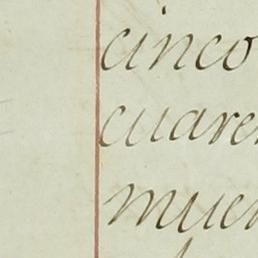 cinco
cuare
mue